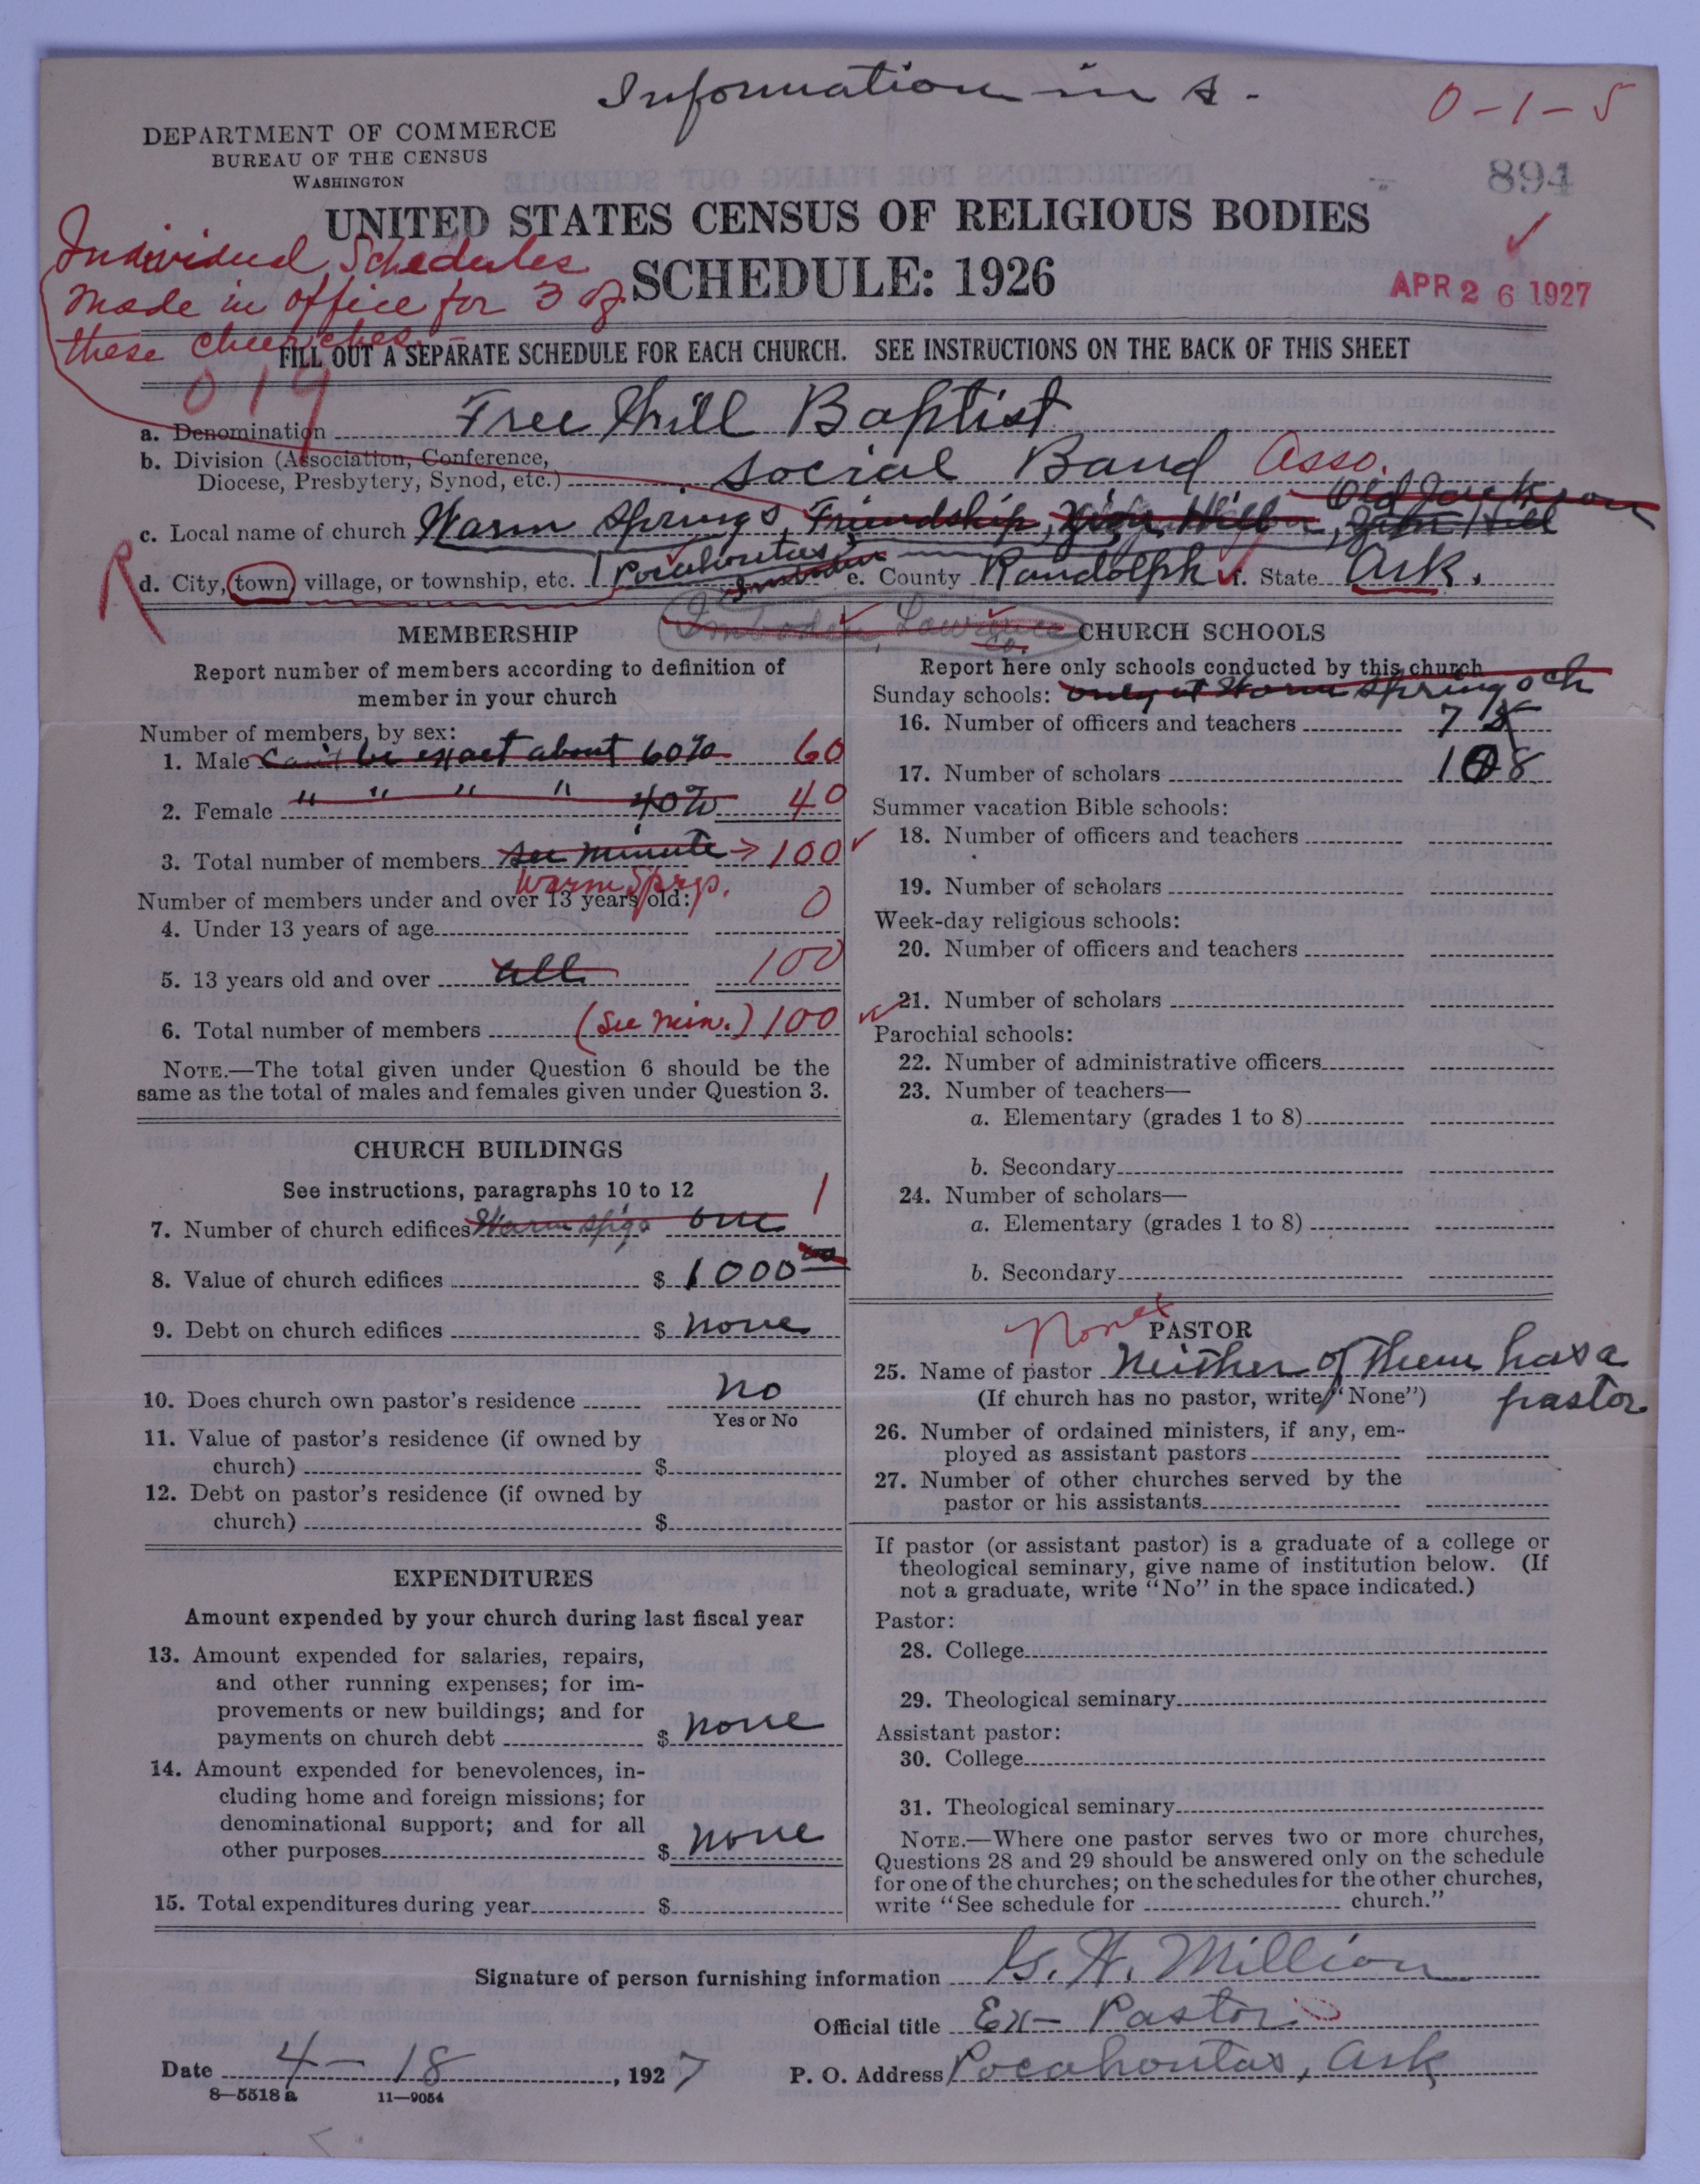 Information in s -
0-1-5
DEPARTMENT OF COMMERCE
BUREAU OF THE CENSUS
WASHINGTON
894
UNITED STATES CENSUS OF RELIGIOUS BODIES
SCHEDULE: 1926
APR 26 1927
Individual Schedules
made in office for 3 of
these churches.
FILL OUT A SEPARATE SCHEDULE FOR EACH CHURCH. SEE INSTRUCTIONS ON THE BACK OF THIS SHEET
019
a. Denomination Free Will Baptist
b. Division (Association, Conference,
Diocese, Presbytery, Synod, etc.) Social Band Asso.
Old Jackson
c. Local name of church Warm Springs, Friendship,
R
d. City, town, village, or township, etc. Pocahontas e. County Randolph f. State Ark.
Imboden Lawrence Co.
MEMBERSHIP
Report number of members according to definition of
member in your church
Number of members, by sex:
1. Male Can't be exact about 60% 60
2. Female " " " " 40% 40
3. Total number of members see minute → 100
Warm Sprgs.
Number of members under and over 13 years old:
4. Under 13 years of age 0
5. 13 years old and over all 100
6. Total number of members (See min.) 100
NOTE.—The total given under Question 6 should be the
same as the total of males and females given under Question 3.
CHURCH BUILDINGS
See instructions, paragraphs 10 to 12
7. Number of church edifices Warm Spgs one 1
8. Value of church edifices $ 1000 00
9. Debt on church edifices $ none
10. Does church own pastor's residence no
Yes or No
11. Value of pastor's residence (if owned by
church) $
12. Debt on pastor's residence (if owned by
church) $
EXPENDITURES
Amount expended by your church during last fiscal year
13. Amount expended for salaries, repairs,
and other running expenses; for im-
provements or new buildings; and for
payments on church debt $ none
14. Amount expended for benevolences, in-
cluding home and foreign missions; for
denominational support; and for all
other purposes $ none
15. Total expenditures during year $
CHURCH SCHOOLS
Report here only schools conducted by this church
Sunday schools: only at Warm Spring sch
16. Number of officers and teachers 7
17. Number of scholars 108
Summer vacation Bible schools:
18. Number of officers and teachers
19. Number of scholars
Week-day religious schools:
20. Number of officers and teachers
21. Number of scholars
Parochial schools:
22. Number of administrative officers
23. Number of teachers—
a. Elementary (grades 1 to 8)
b. Secondary
24. Number of scholars—
a. Elementary (grades 1 to 8)
b. Secondary
None
PASTOR
25. Name of pastor Neither of them has a
(If church has no pastor, write "None") pastor
26. Number of ordained ministers, if any, em-
ployed as assistant pastors
27. Number of other churches served by the
pastor or his assistants
If pastor (or assistant pastor) is a graduate of a college or
theological seminary, give name of institution below. (If
not a graduate, write "No" in the space indicated.)
Pastor:
28. College
29. Theological seminary
Assistant pastor:
30. College
31. Theological seminary
NOTE.—Where one pastor serves two or more churches,
Questions 28 and 29 should be answered only on the schedule
for one of the churches; on the schedules for the other churches,
write "See schedule for church."
Signature of person furnishing information G. W. Million
Official title Ex- Pastor
Date 4-18, 1927 P. O. Address Pocahontas, Ark
8—5518 a 11—9054